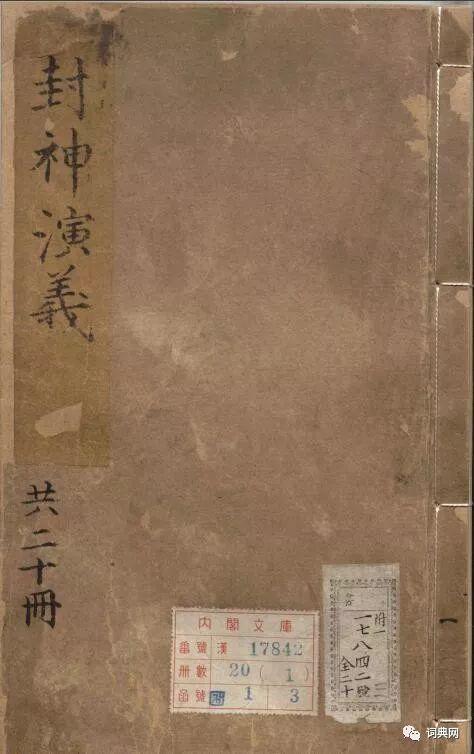 封神演義
共二十冊
内閣文庫
番號 漢 17842
冊數 20(1)
函號 1 3
附一
一七八四二號
全二十
一
词典网